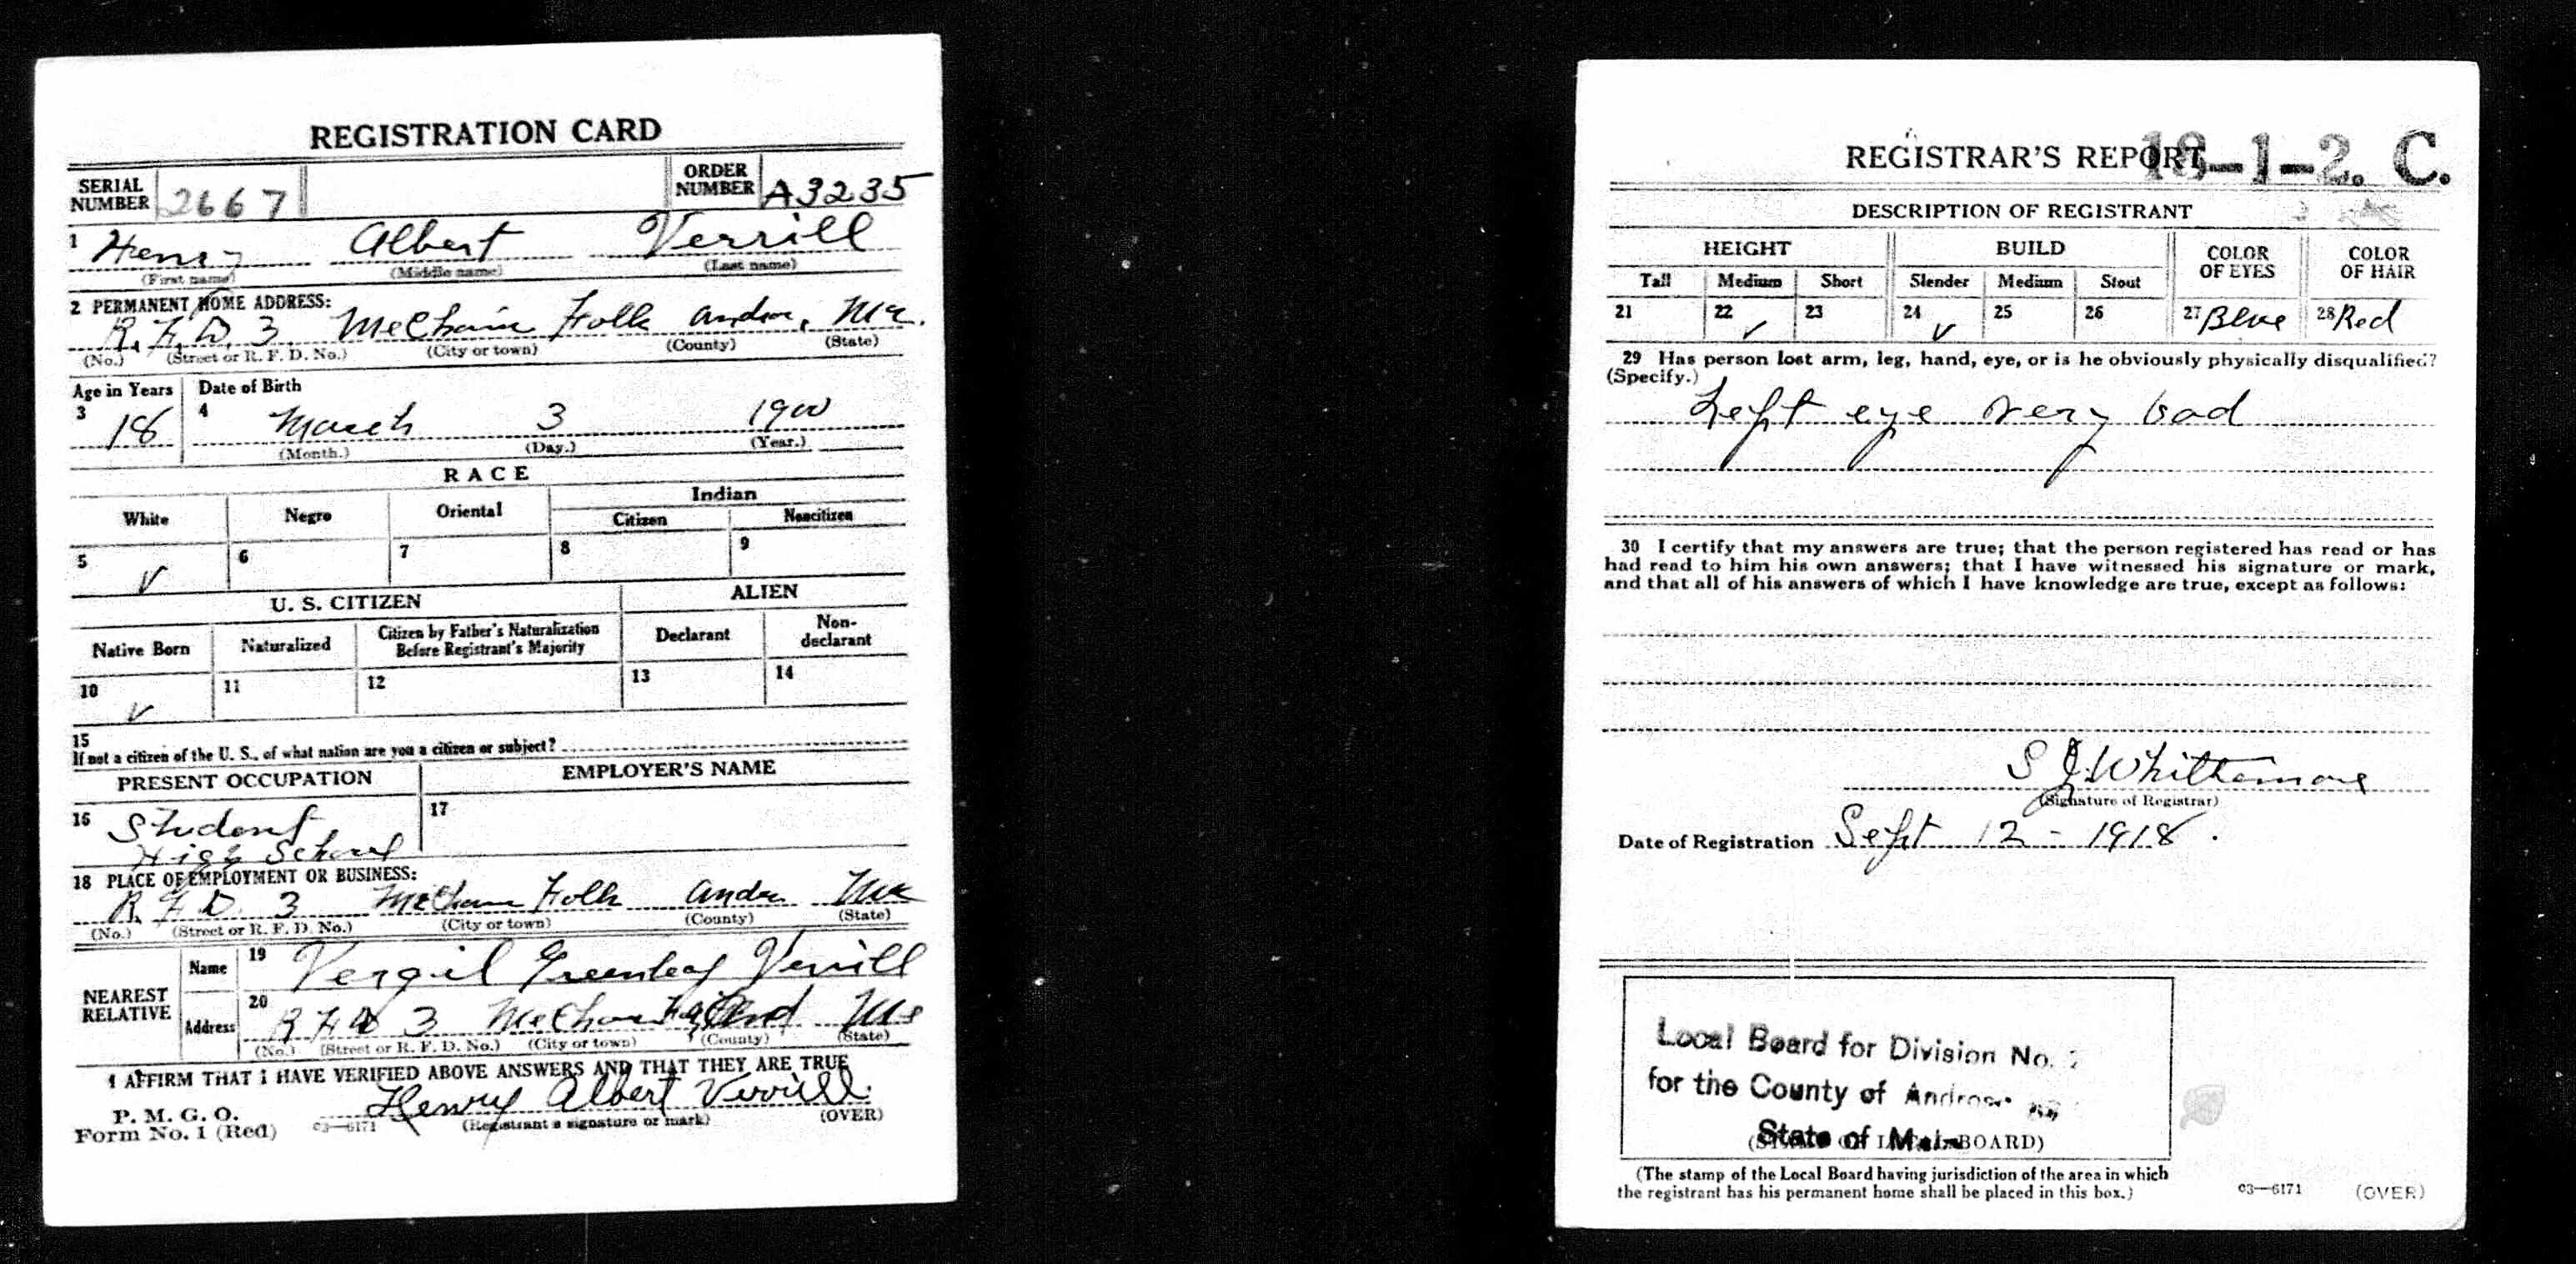 REGISTRATION CARD
SERIAL NUMBER 2667 ORDER NUMBER A3235
1 Henry Albert Verrill
(First name) (Middle name) (Last name)
2 PERMANENT HOME ADDRESS:
R.F.D. 3 Mechain Folls Andro, Me.
(No.) (Street or R. F. D. No.) (City or town) (County) (State)
Age in Years Date of Birth
3 18 4 March 3 1900
(Month.) (Day.) (Year.)
RACE
White Negro Oriental Indian
Citizen Noncitizen
5 ✓ 6 7 8 9
U. S. CITIZEN ALIEN
Native Born Naturalized Citizen by Father's Naturalization Before Registrant's Majority Declarant Non-declarant
10 ✓ 11 12 13 14
15
If not a citizen of the U. S., of what nation are you a citizen or subject?
PRESENT OCCUPATION EMPLOYER'S NAME
16 Student 17
High School
18 PLACE OF EMPLOYMENT OR BUSINESS:
R.F.D. 3 Me
(No.) (Street or R. F. D. No.) (City or town) (County) (State)
NEAREST RELATIVE
Name 19 Vergil Greenleaf Verrill
Address 20 R F D 3 Me
(No.) (Street or R. F. D. No.) (City or town) (County) (State)
I AFFIRM THAT I HAVE VERIFIED ABOVE ANSWERS AND THAT THEY ARE TRUE
P. M. G. O.
Form No. 1 (Red) 03—6171 Henry Albert Verrill. (OVER)
(Registrant's signature or mark)
REGISTRAR'S REPORT 18-1-2. C.
DESCRIPTION OF REGISTRANT
HEIGHT BUILD COLOR OF EYES COLOR OF HAIR
Tall Medium Short Slender Medium Stout
21 22 ✓ 23 24 ✓ 25 26 27 Blue 28 Red
29 Has person lost arm, leg, hand, eye, or is he obviously physically disqualified?
(Specify.)
Left eye very bad
30 I certify that my answers are true; that the person registered has read or has
had read to him his own answers; that I have witnessed his signature or mark,
and that all of his answers of which I have knowledge are true, except as follows:
S J Whittemore
(Signature of Registrar)
Date of Registration Sept 12 - 1918.
Local Board for Division No.
for the County of
State of
BOARD)
(The stamp of the Local Board having jurisdiction of the area in which
the registrant has his permanent home shall be placed in this box.)
03—6171 (OVER)